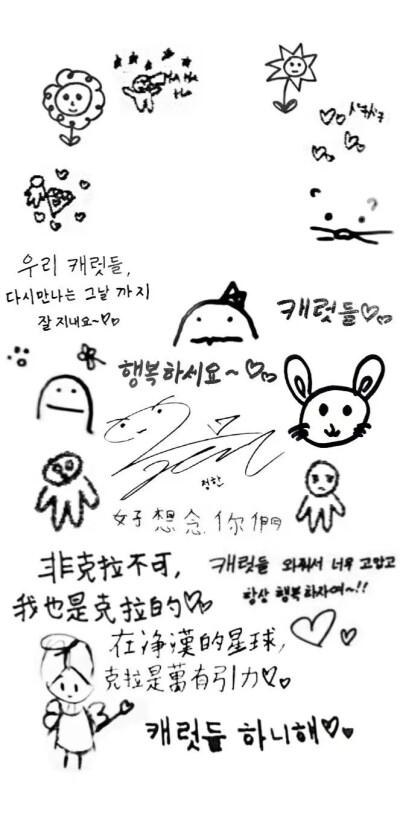 Ha Ha
Ha
우리 캐럿들,
다시만나는 그날 까지
잘 지내요~♡♡
캐럿들♡♡
행복하세요~♡♡
정한
好想念你們
非克拉不可,
我也是克拉的♡♡
캐럿들 와줘서 너무 고맙고
항상 행복하자여~!!
在净漢的星球,
克拉是萬有引力♡♡
캐럿들 하니해♡♡